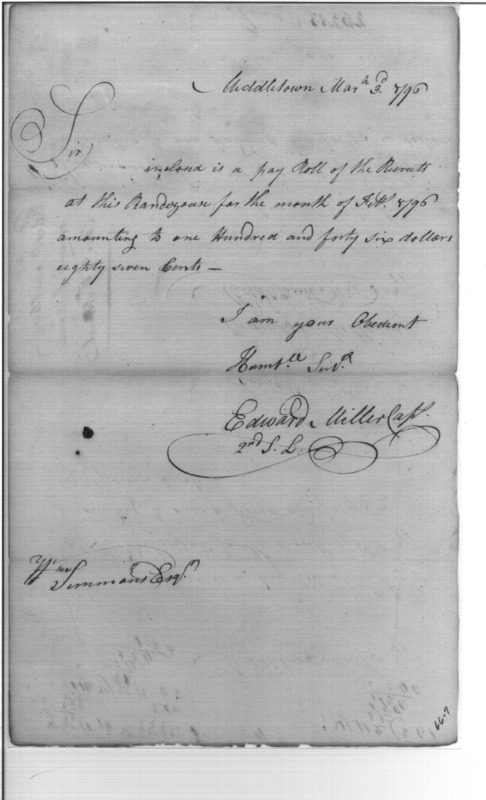 Middletown Marh 3d. 1796
Sir
inclosed is a pay Roll of the Recruits
at this Randezouse for the month of Feby. 1796
amounting to one Hundred and forty six dollars
eighty seven Cents —
I am your Obedient
Humble Servt.
Edward Miller Capt.
2nd S. L.
Wm
Simmons Esqr.
66-7